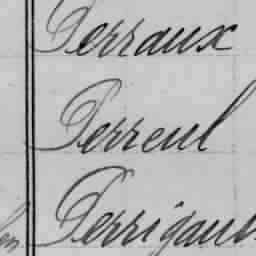 Perraux
Perreul
Perrigaud